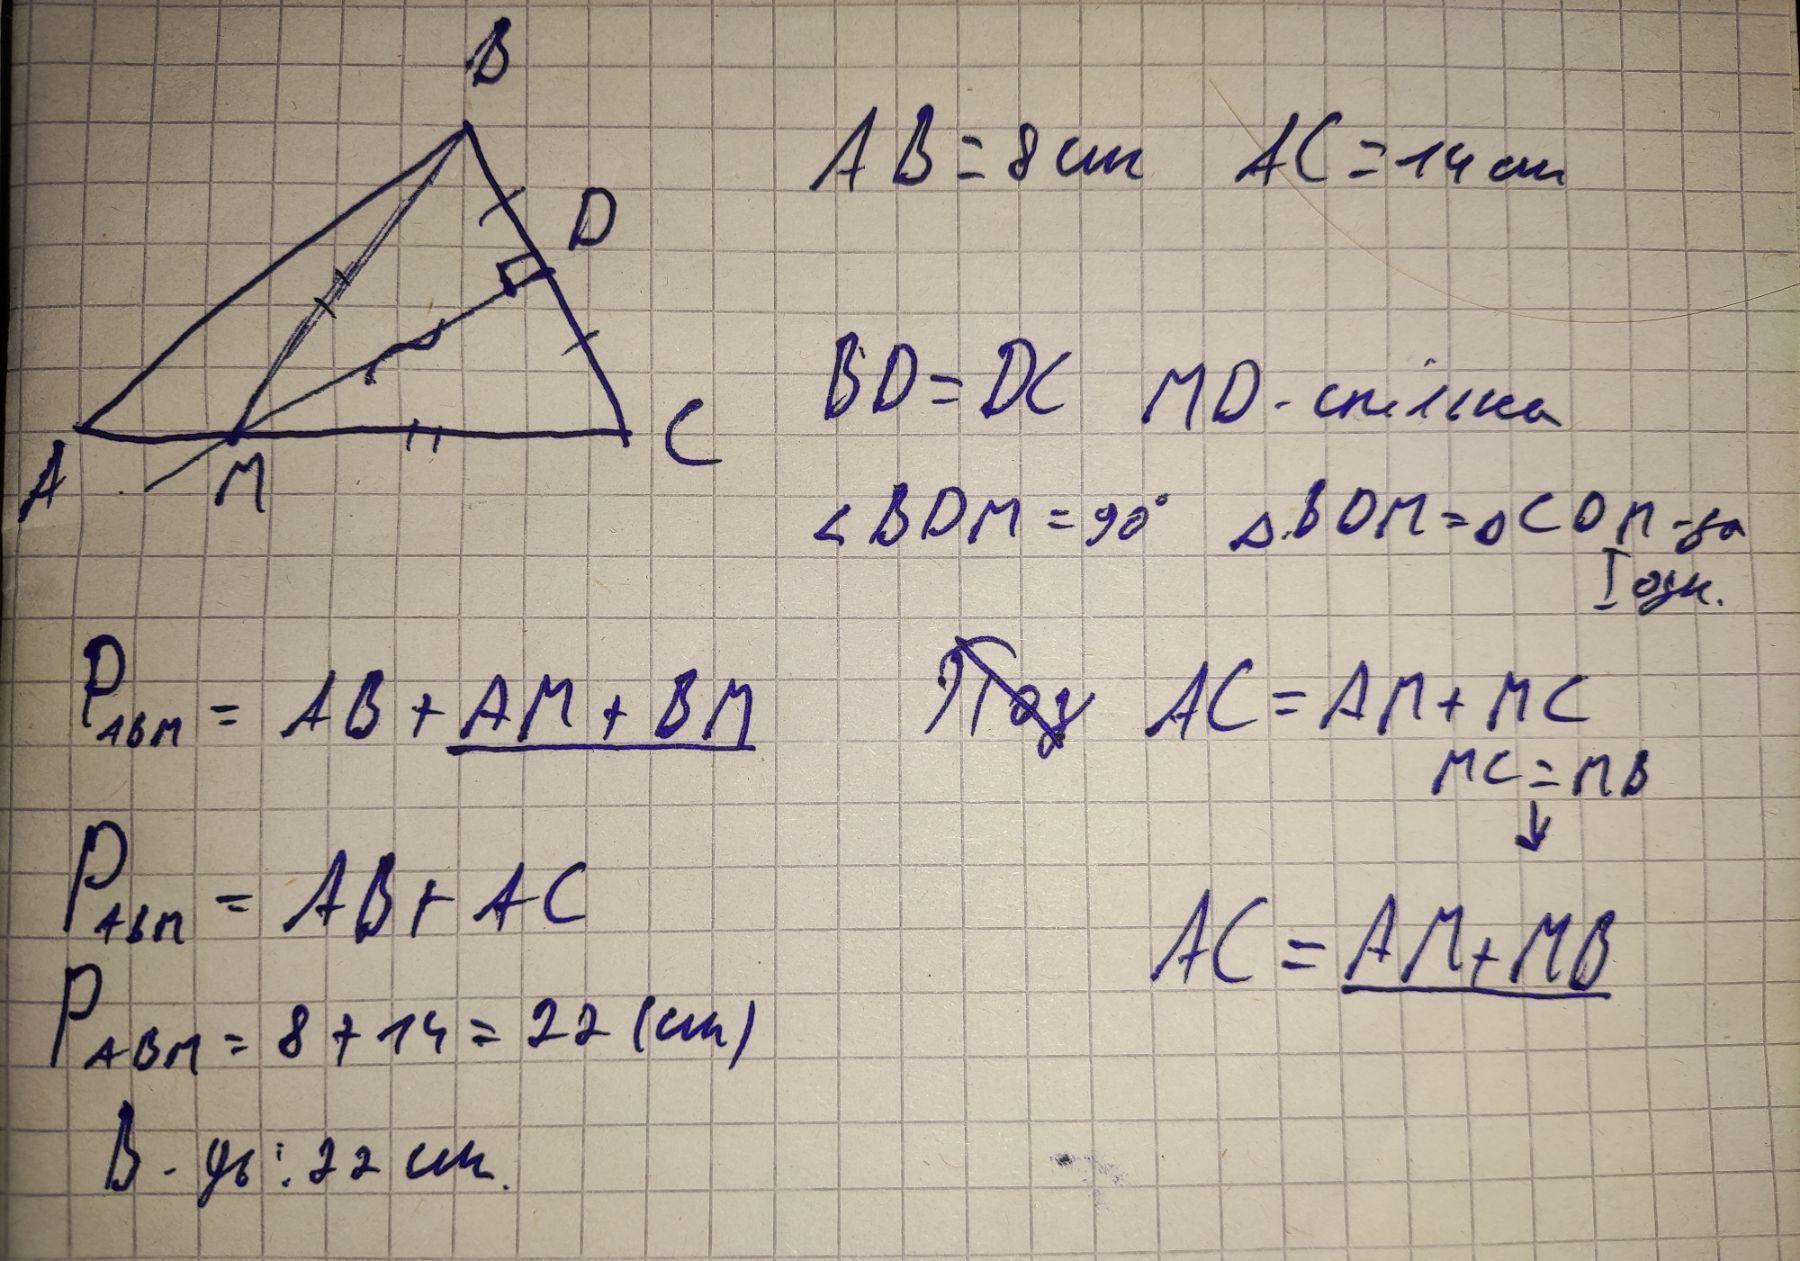 B
D
A
M
C
AB = 8 см AC = 14 см
BD = DC MD - спільна
∠BDM = 90° △BDM = △CDM - за
I озн.
P ABM = AB + AM + BM
AC = AM + MC
MC = MB
↓
P ABM = AB + AC
AC = AM + MB
P ABM = 8 + 14 = 22 (см)
В-дь: 22 см.